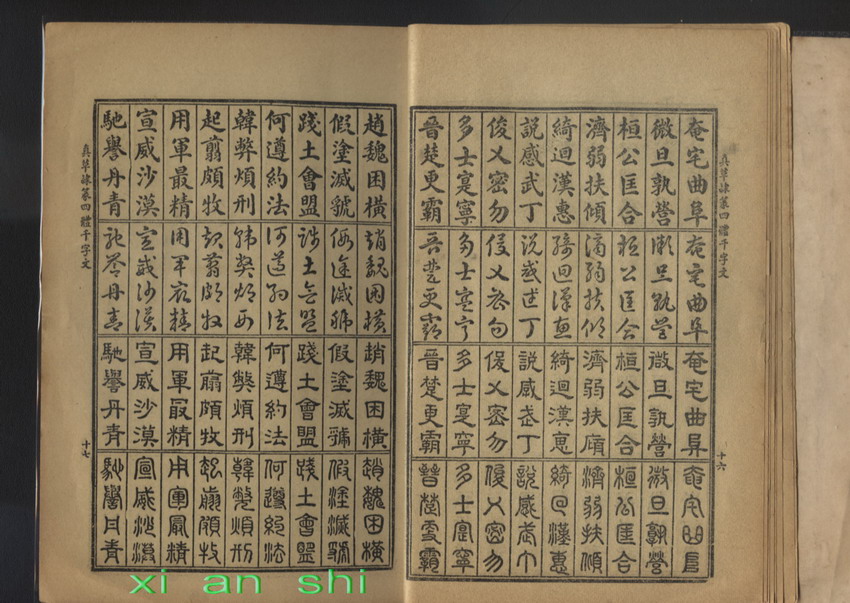 真草隸篆四體千字文 十六
奄宅曲阜 奄宅曲阜 奄宅曲阜 奄宅曲阜
微旦孰營 微旦孰營 微旦孰營 微旦孰營
桓公匡合 桓公匡合 桓公匡合 桓公匡合
濟弱扶傾 濟弱扶傾 濟弱扶傾 濟弱扶傾
綺迴漢惠 綺迴漢惠 綺迴漢惠 綺回漢惠
説感武丁 説感武丁 説感武丁 説感武丁
俊乂密勿 俊乂密勿 俊乂密勿 俊乂密勿
多士寔寧 多士寔寧 多士寔寧 多士寔寧
晉楚更霸 晉楚更霸 晉楚更霸 晉楚更霸
趙魏困橫 趙魏困橫 趙魏困橫 趙魏困橫
假塗滅虢 假途滅虢 假塗滅虢 假塗滅虢
踐土會盟 踐土會盟 踐土會盟 踐土會盟
何遵約法 何遵約法 何遵約法 何遵約法
韓弊煩刑 韓弊煩刑 韓弊煩刑 韓弊煩刑
起翦頗牧 起翦頗牧 起翦頗牧 起翦頗牧
用軍最精 用軍最精 用軍最精 用軍最精
宣威沙漠 宣威沙漠 宣威沙漠 宣威沙漠
馳譽丹青 馳譽丹青 馳譽丹青 馳譽丹青
真草隸篆四體千字文 十七
xi an shi